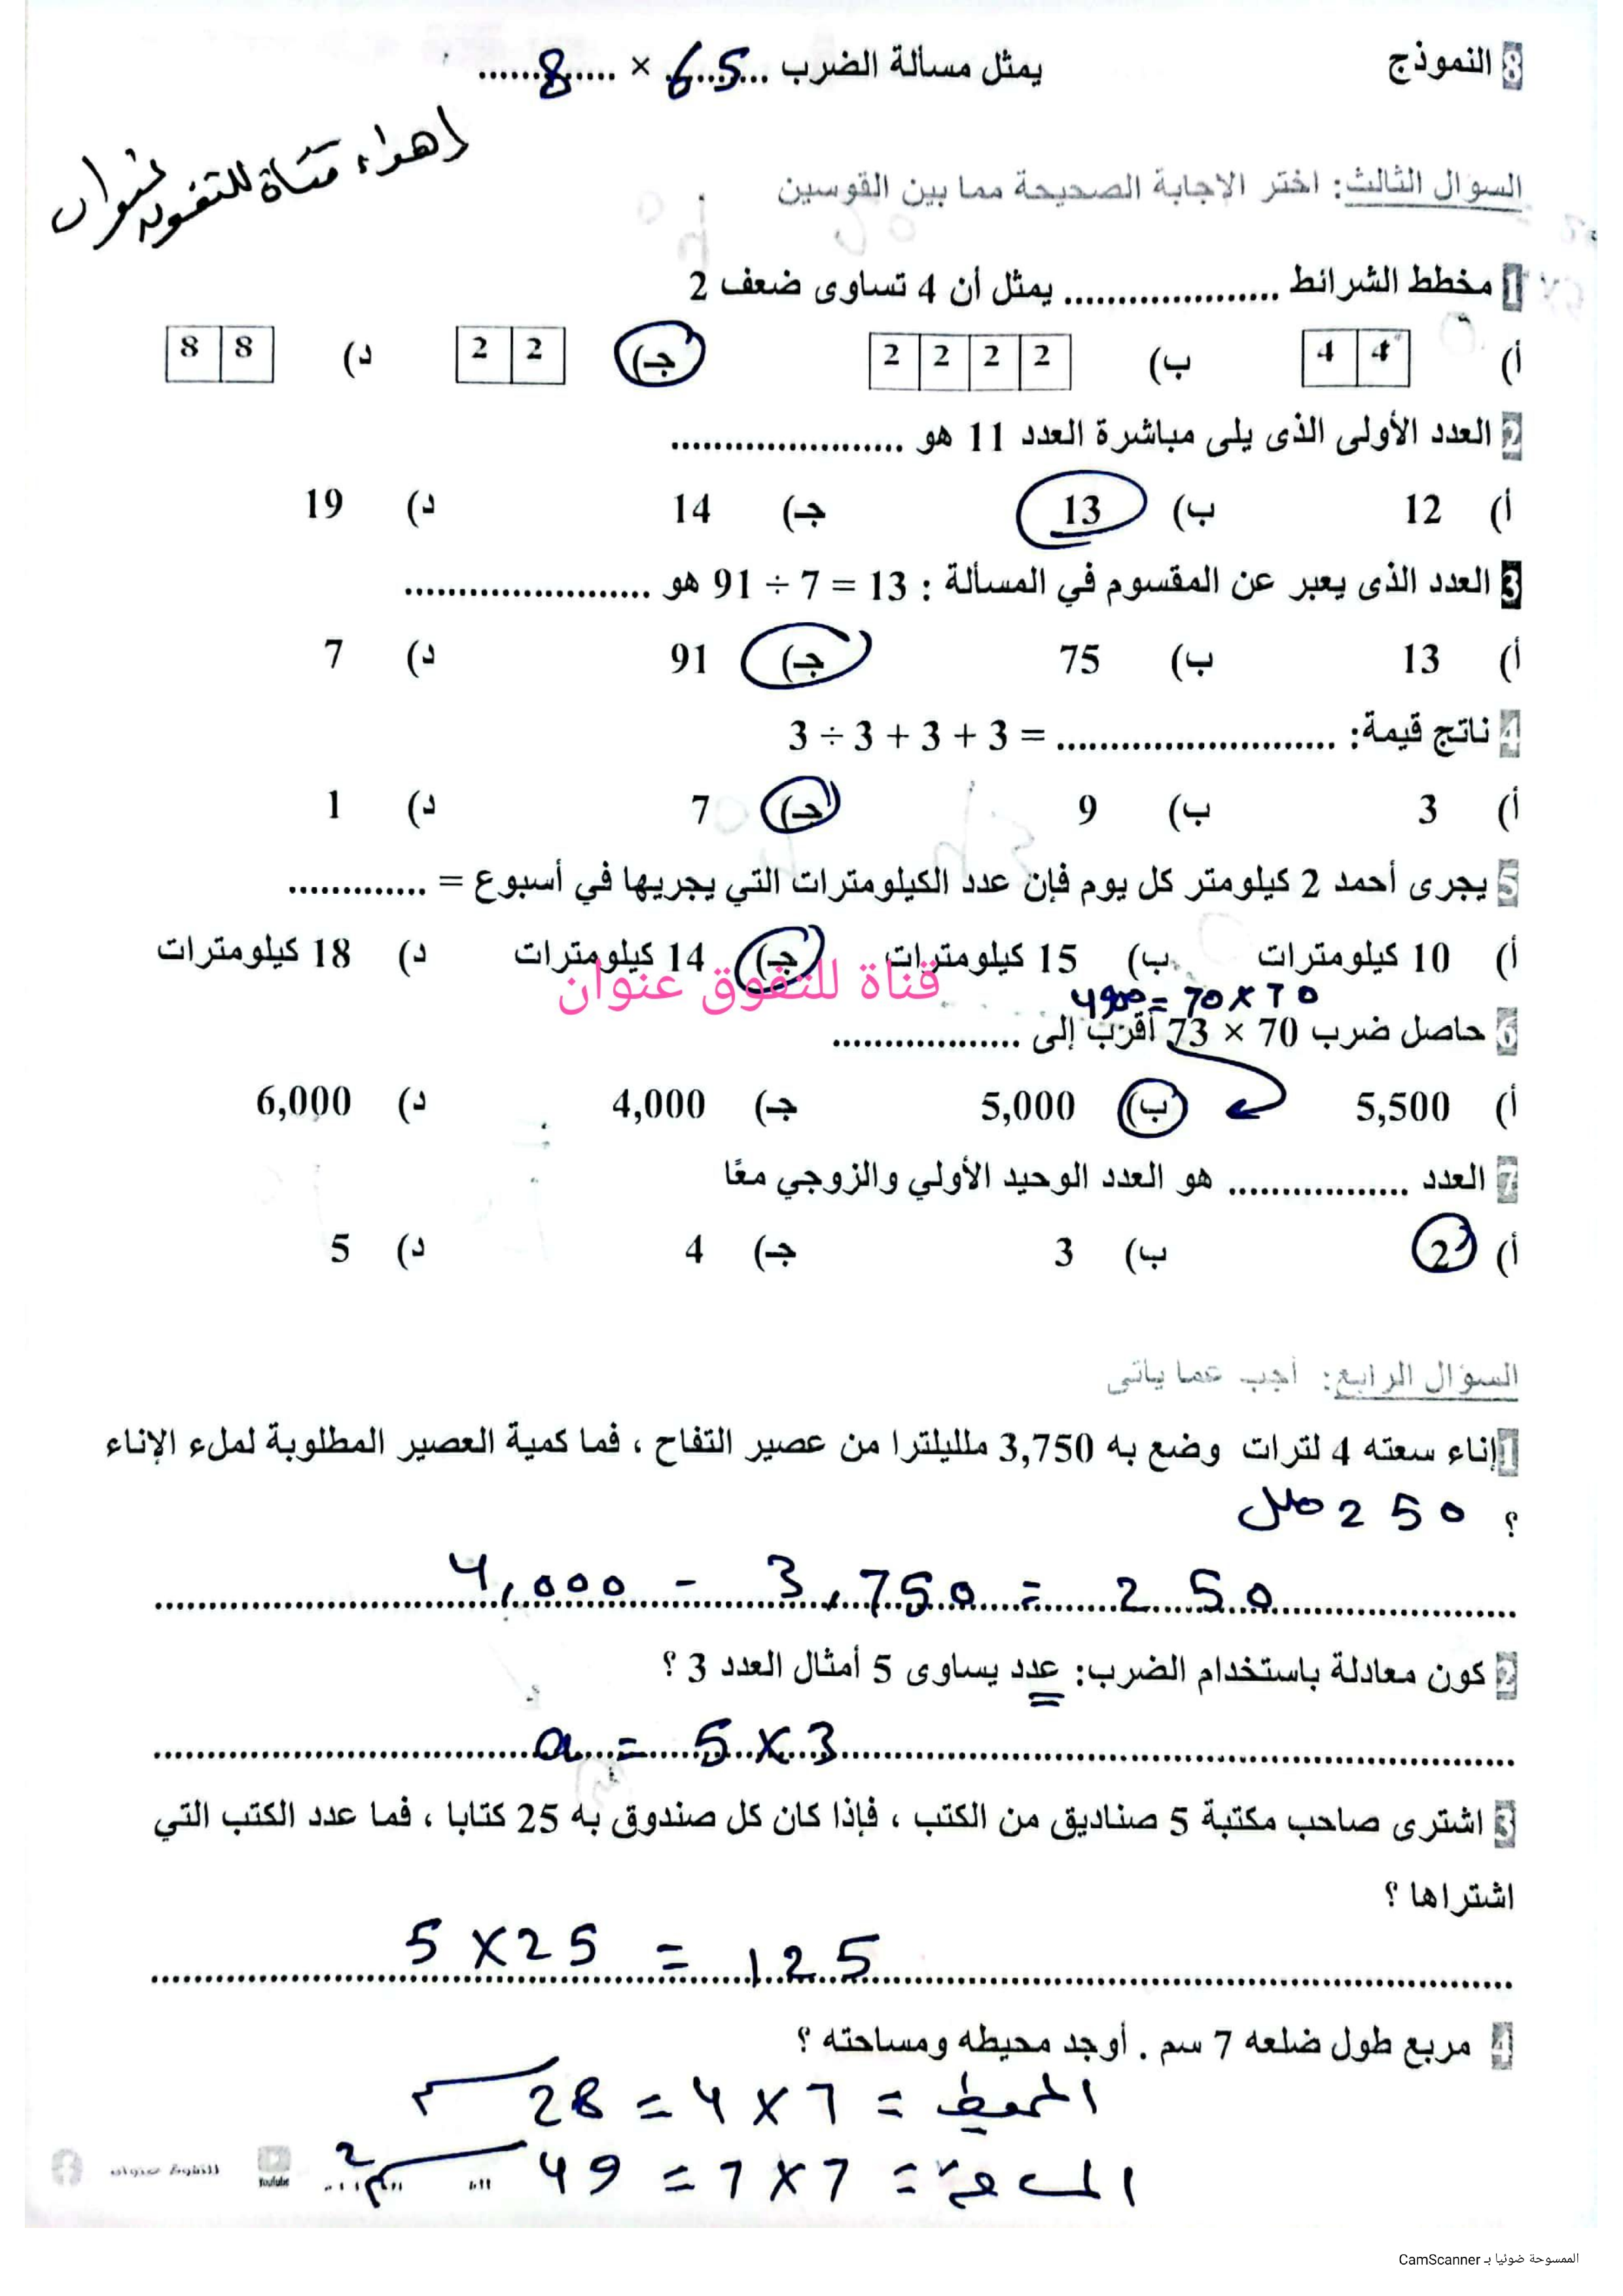 8 النموذج يمثل مسألة الضرب ...65... × ...8...
إهداء قناة للتفوق عنوان
السؤال الثالث: اختر الاجابة الصحيحة مما بين القوسين
1 مخطط الشرائط .................... يمثل أن 4 تساوى ضعف 2
أ) 4 4 ب) 2 2 2 2 جـ) 2 2 د) 8 8
2 العدد الأولى الذى يلى مباشرة العدد 11 هو ......................
أ) 12 ب) 13 جـ) 14 د) 19
3 العدد الذى يعبر عن المقسوم في المسألة : 91 ÷ 7 = 13 هو .......................
أ) 13 ب) 75 جـ) 91 د) 7
4 ناتج قيمة: .......................... = 3 ÷ 3 + 3 + 3
أ) 3 ب) 9 جـ) 7 د) 1
5 يجرى أحمد 2 كيلومتر كل يوم فإن عدد الكيلومترات التي يجريها في أسبوع = .............
أ) 10 كيلومترات ب) 15 كيلومترات جـ) 14 كيلومترات د) 18 كيلومترات
قناة للتفوق عنوان
4900 = 70 × 70
6 حاصل ضرب 70 × 73 أقرب إلى ..................
أ) 5,500 ب) 5,000 جـ) 4,000 د) 6,000
7 العدد ................. هو العدد الوحيد الأولي والزوجي معًا
أ) 2 ب) 3 جـ) 4 د) 5
السؤال الرابع: أجب عما يأتى
1 إناء سعته 4 لترات وضع به 3,750 ملليلترا من عصير التفاح ، فما كمية العصير المطلوبة لملء الإناء
؟ 250 ملل
4,000 - 3,750 = 250
2 كون معادلة باستخدام الضرب: عدد يساوى 5 أمثال العدد 3 ؟
a = 5 × 3
3 اشترى صاحب مكتبة 5 صناديق من الكتب ، فإذا كان كل صندوق به 25 كتابا ، فما عدد الكتب التي
اشتراها ؟
5 × 25 = 125
4 مربع طول ضلعه 7 سم . أوجد محيطه ومساحته ؟
المحيط = 7 × 4 = 28 سم
المساحة = 7 × 7 = 49 سم2
YouTube
الممسوحة ضوئيا بـ CamScanner